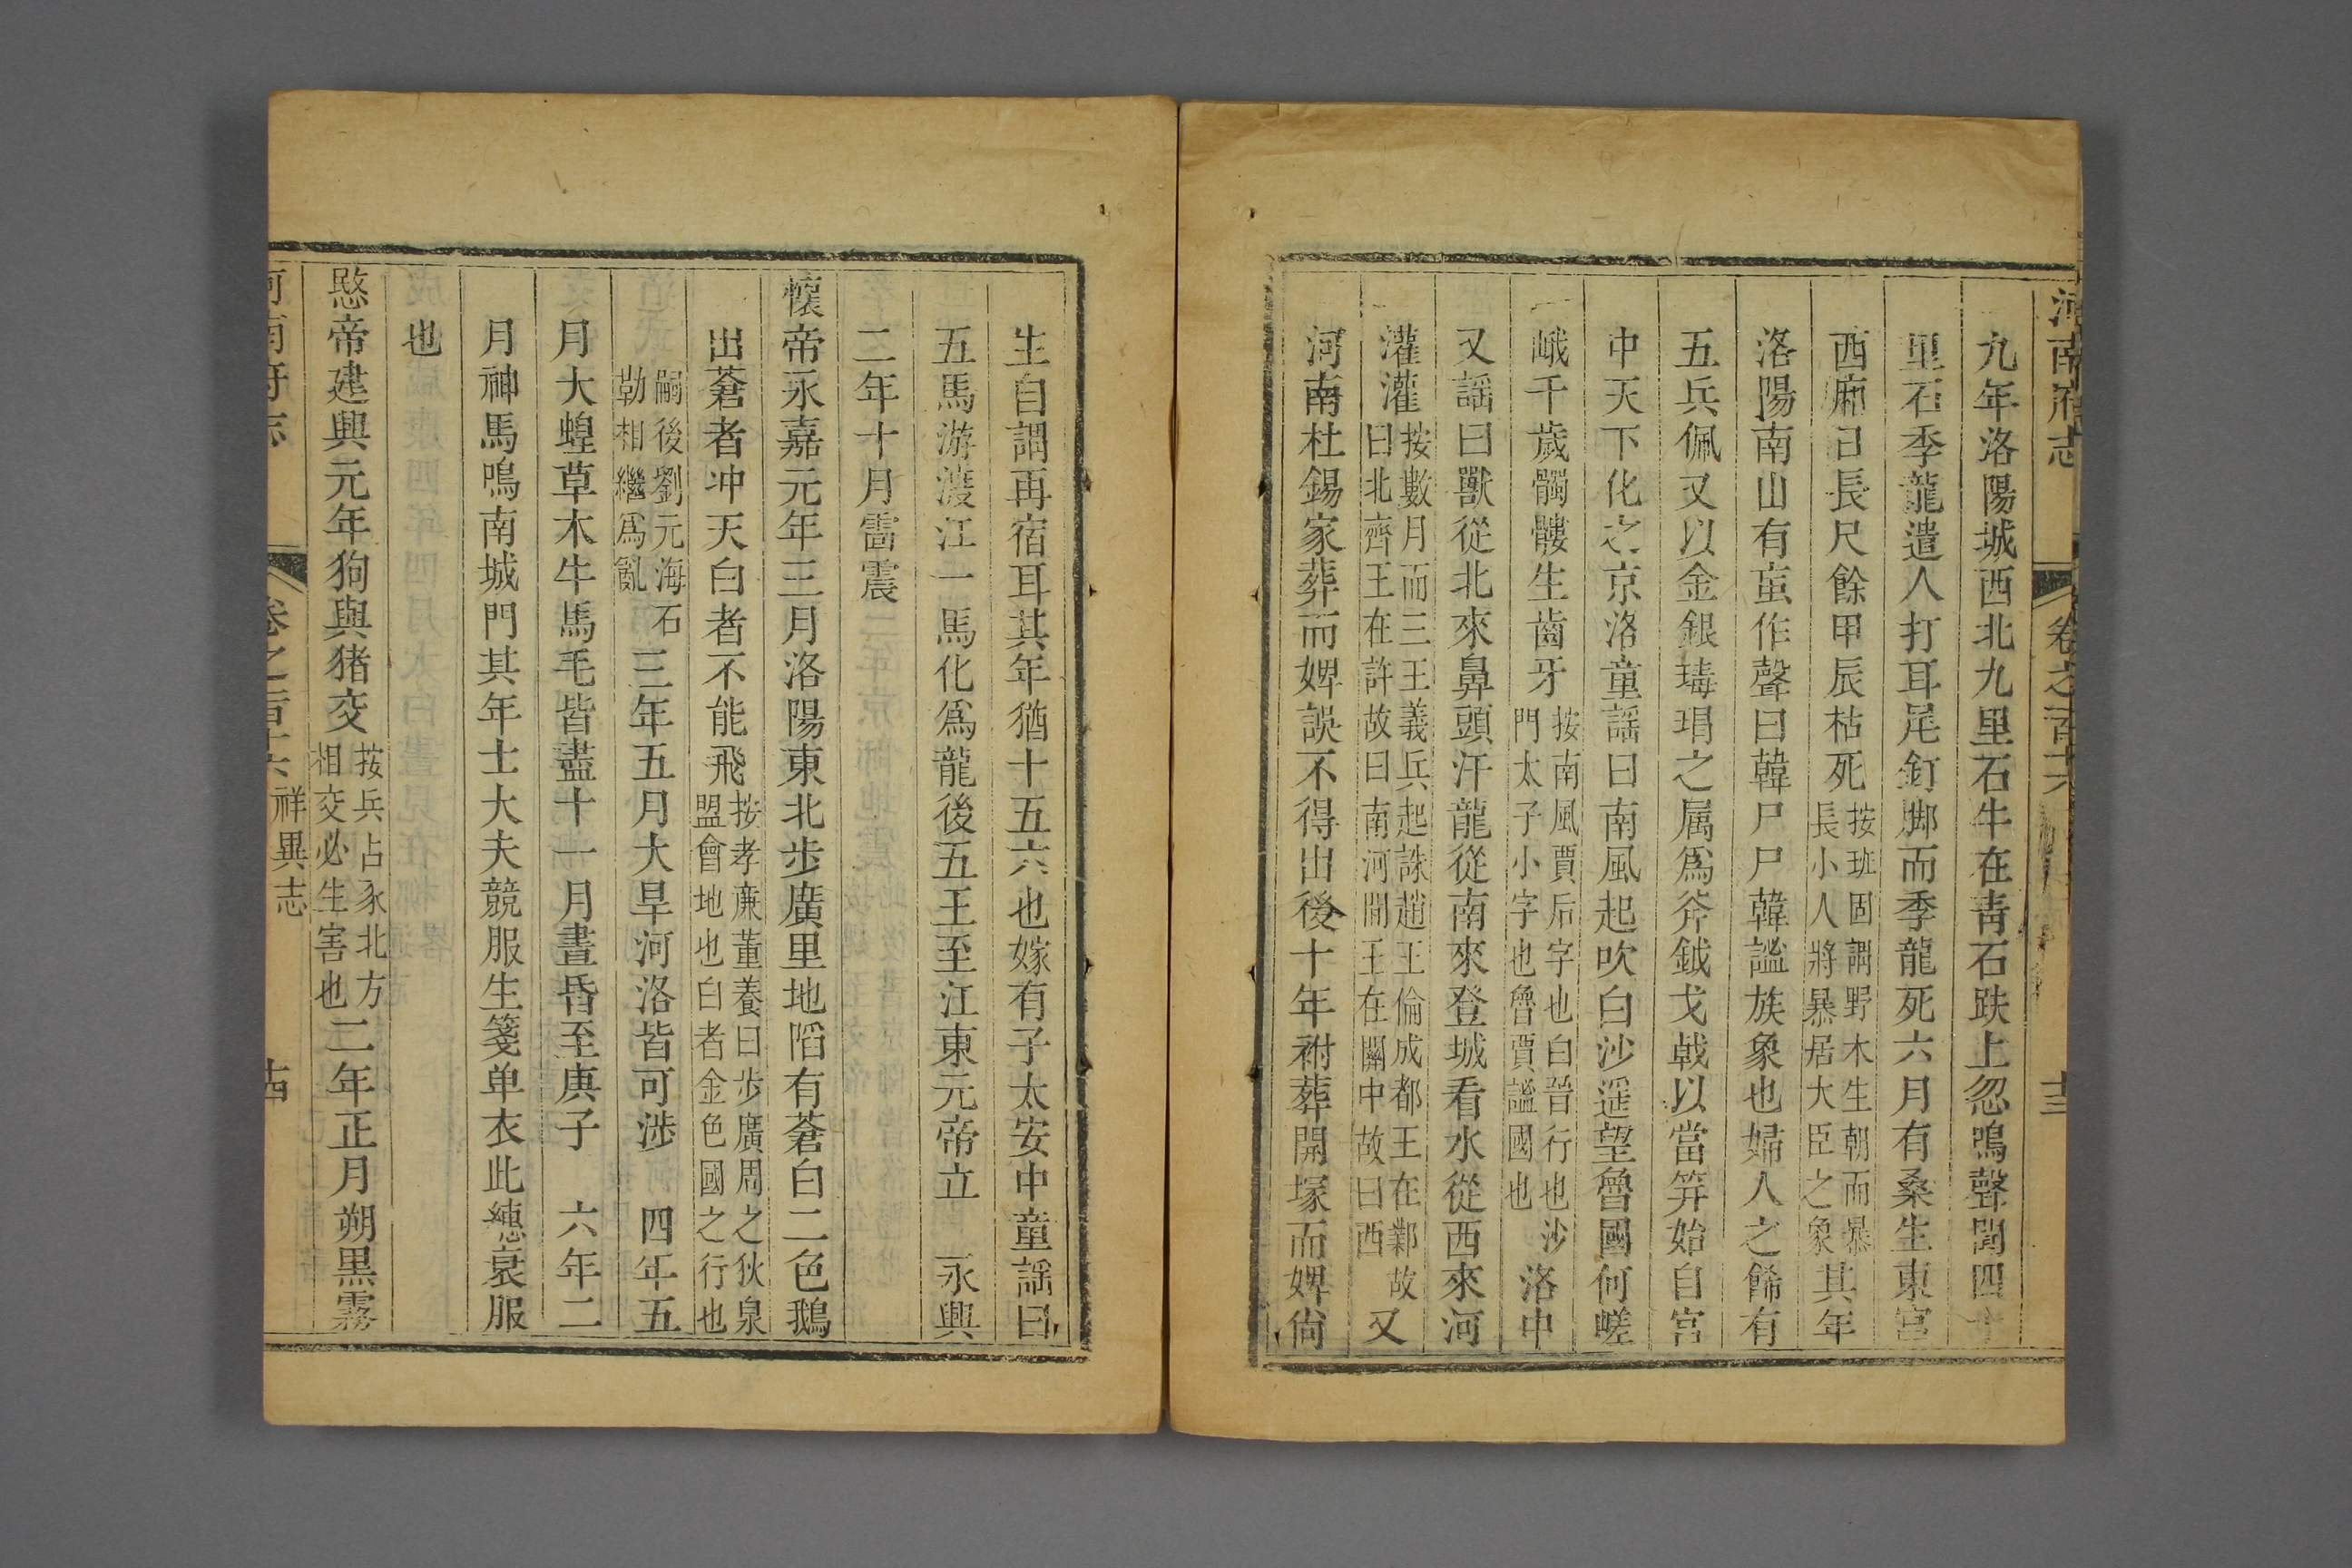 河南府志 卷之一百十六 十三
九年洛陽城西北九里石牛在青石趺上忽鳴聲聞四十
里石季龍遣人打耳尾釘脚而季龍死六月有桑生東宮
西廂日長尺餘甲辰枯死按班固謂野木生朝而暴長小人將暴居大臣之象其年
洛陽南山有䖟作聲曰韓尸尸韓謐族象也婦人之餙有
五兵佩又以金銀瑇瑁之属爲斧鉞戈戟以當笄始自宮
中天下化之京洛童謡曰南風起吹白沙遥望魯國何嵯
峨千歲髑髏生齒牙按南風賈后字也白晉行也沙門太子小字也魯賈謐國也洛中
又謡曰獸從北來鼻頭汗龍從南來登城看水從西來河
灌灌按數月而三王義兵起誅趙王倫成都王在鄴故曰北齊王在許故曰南河間王在關中故曰西又
河南杜錫家葬而婢誤不得出後十年祔葬開塚而婢尙
生自謂再宿耳其年猶十五六也嫁有子太安中童謡曰
五馬游渡江一馬化爲龍後五王至江東元帝立 永興
二年十月雷震
懷帝永嘉元年三月洛陽東北步廣里地䧟有蒼白二色鵝
出蒼者冲天白者不能飛按孝廉董養曰步廣周之狄泉盟會地也白者金色國之行也
嗣後劉元海石勒相繼爲亂三年五月大旱河洛皆可涉 四年五
月大蝗草木牛馬毛皆盡十一月晝昏至庚子 六年二
月神馬鳴南城門其年士大夫競服生箋单衣此繐衰服
也
愍帝建興元年狗與猪交按兵占豕北方相交必生害也二年正月朔黑霧
河南府志 卷之一百十六 祥異志 十四